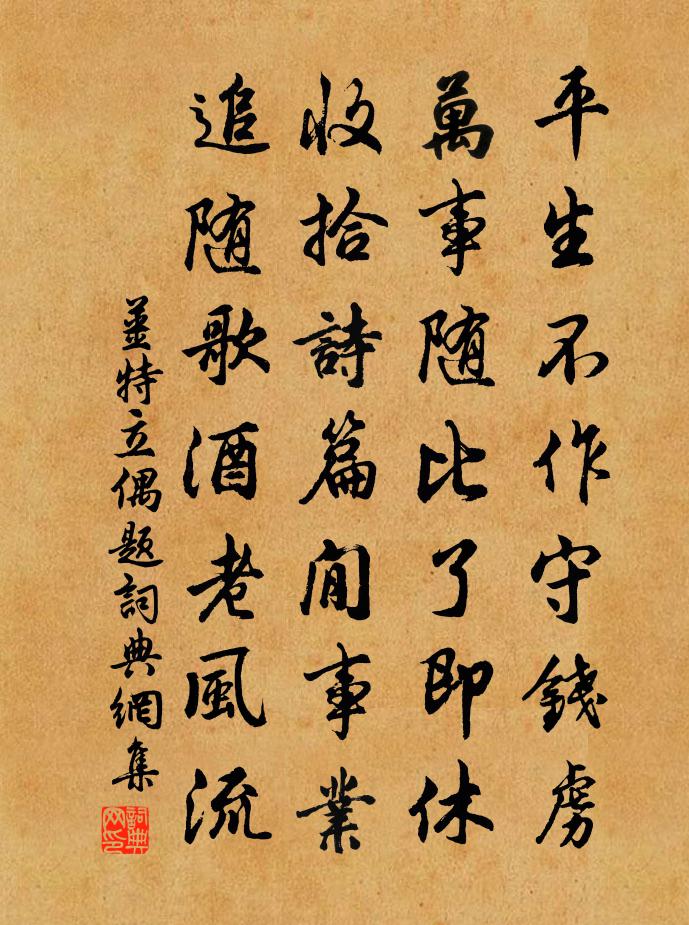 平生不作守錢虜
萬事随比了即休
收拾詩篇閒事業
追随歌酒老風流
姜特立偶題詞典網集
詞典网印